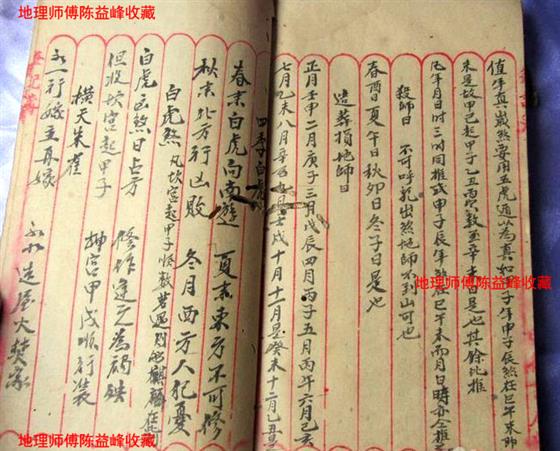 地理师傅陈益峰收藏
地理师傅陈益峰收藏
值年真歲煞要用五虎遁以為真如甲子年甲子辰煞在巳午未即
未是故甲己起甲子乙丑丙數至辛未日是也其餘此推
凡年月日時三时同推或甲子辰年煞在巳午未而月日時亦仝推
殺師日 不可呼乳出煞地師不到山可也
春酉日夏午日秋卯日冬子日是也
造葬損地師日
正月壬申二月庚子三月戊辰四月丙子五月丙午六月己亥
七月乙未八月辛戌十月十一月癸未十二月乙丑
四季白虎
春末白虎向南遊 夏末東方不可修
秋末北方行凶敗 冬月西方人犯憂
白虎煞 凡坎宮起甲子順數若遇到
白虎凶煞日占方 修作逢之為禍殃
但將坎宮起甲子 坤宮甲戌順行裝
橫天朱雀
初一行嫁主再嫁 初九造屋火焚家
地理师傅陈益峰收藏
地理师傅陈益峰收藏